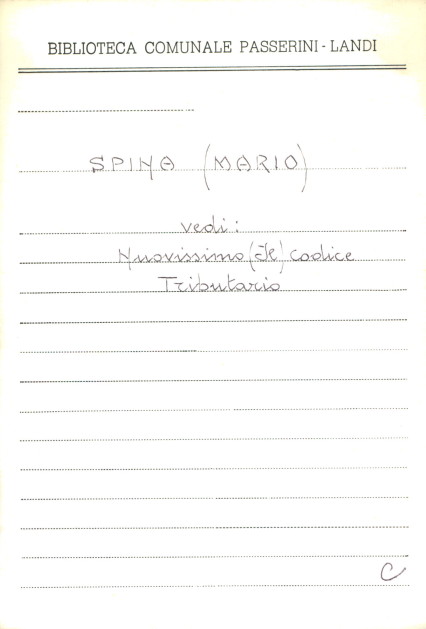 BIBLIOTECA COMUNALE PASSERINI - LANDI
SPINA (MARIO)
vedi:
Nuovissimo (Il) codice
Tributario
C